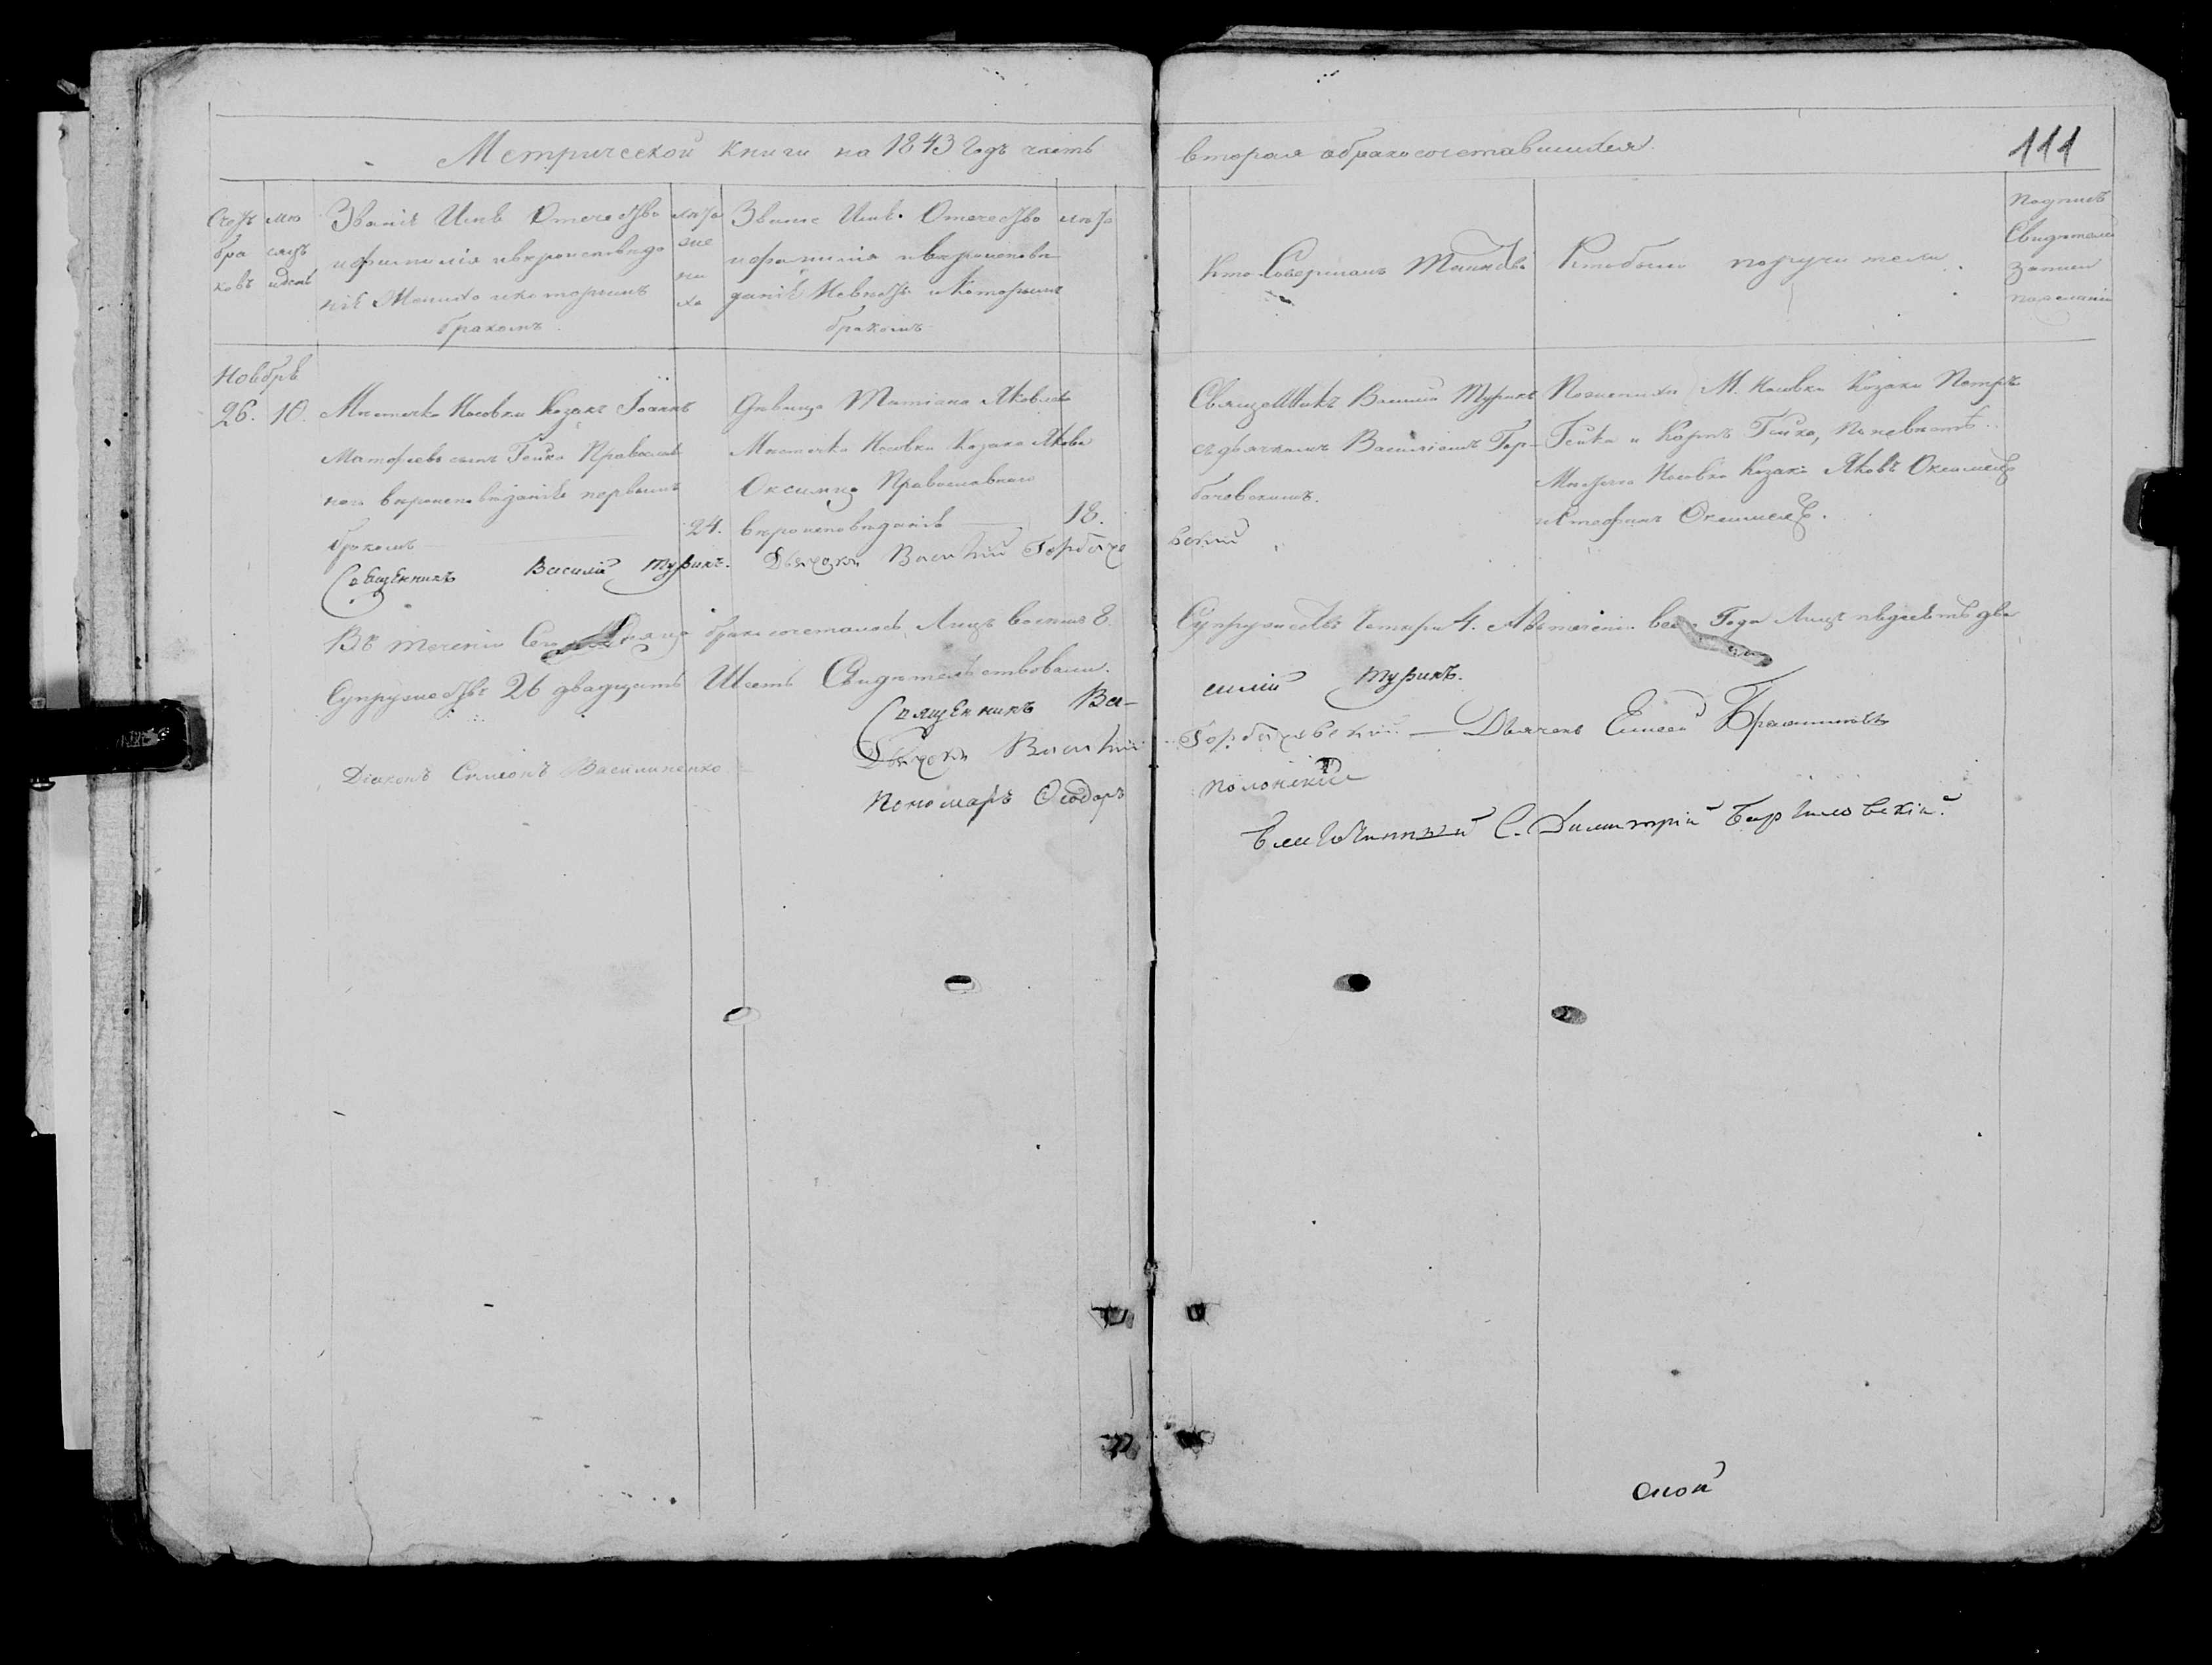 Метрической книги на 1843 Годъ часть вторая о бракосочетавшихся.
111
Счетъ браковъ
мѣсяцъ и день
Званіе Имя Отечество
и фамилія и вкроисповѣда
ніе Жениха и которымъ
бракомъ
лѣта жениха
Званіе Имя. Отечество
и фамилія и вкроисповѣ
даніе Невѣсты и Которымъ
бракомъ
лѣта
Кто Совершалъ Таинство
Кто были поручители
подпись
Свидѣтелей
записи
по желанію
Ноябрь
26. 10.
Мѣстечка Носовки Козакъ Іоаннъ
Матфіевъ сынъ Гейко Православ
наго вѣроисповѣданія первымъ
бракомъ
24.
Дѣвица Татіана Яковлева
Мѣстечка Носовки Козака Якова
Оксимца Православнаго
вѣроисповѣданія
18.
СвящеННикъ Василій Турикъ
съ дьячкомъ Василіемъ Гор-
бачевскимъ.
По женихѣ М. Носовки Козаки Петръ
Гейка и Карпъ Гейко, по невѣстѣ
Мѣстечка Носовки Козаки Яковъ Оксимецъ
и Стефанъ Оксимецъ.
Священникъ Василій Турикъ. Дьячокъ Василій Горбаче
вскій
Въ теченіи Сего Мѣсяца бракосочеталось Лицъ восемь 8. Супружествъ Четыре 4. А въ теченіи всего Года Лицъ пѣдесятъ два
Супружествъ 26 двадцать Шесть Свидѣтельствовали.
Священникъ Ва-
силій Турикъ.
Дьячокъ Василій Горбачевскій. — Дьячекъ Елисей
Діаконъ Симеонъ Василиненко
Пономарь Ѳеодоръ Полонскій
Благочинный С. Димитрій